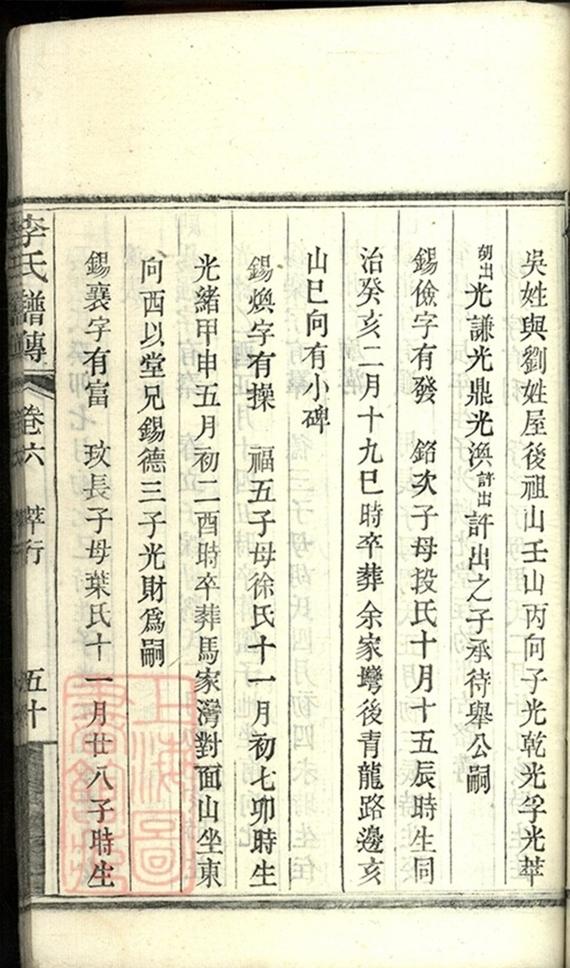 吳姓與劉姓屋後祖山壬山丙向子光乾光孚光萃
胡出光謙光鼎光渙許出許出之子承待舉公嗣
錫儉字有發　銘次子母投氏十月十五辰時生同
治癸亥二月十九巳時卒葬余家壪後青龍路邊亥
山巳向有小碑
錫煥字有操　福五子母徐氏十一月初七卯時生
光緒甲申五月初二酉時卒葬馬家灣對面山坐東
向西以堂兄錫德三子光財爲嗣
錫襄字有富　玫長子母葉氏十一月廿八子時生
李氏譜傳　卷六　萃行　五十
上海圖書館藏